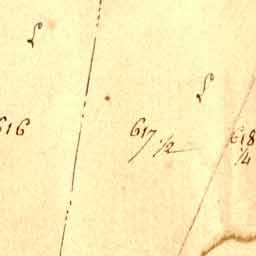 L
L
616
617 1/2
618 1/4